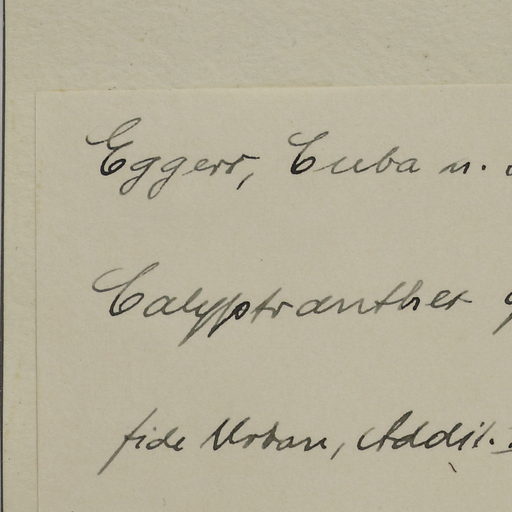 Eggers, Cuba n.
Calyptranthes
fide Urban, Addit.